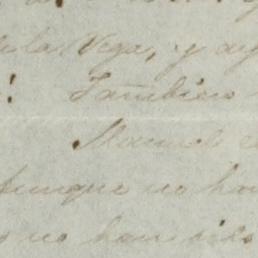 de la Vega, y ay
! Tambien
Manuel e
Aunque no ha
no han sido